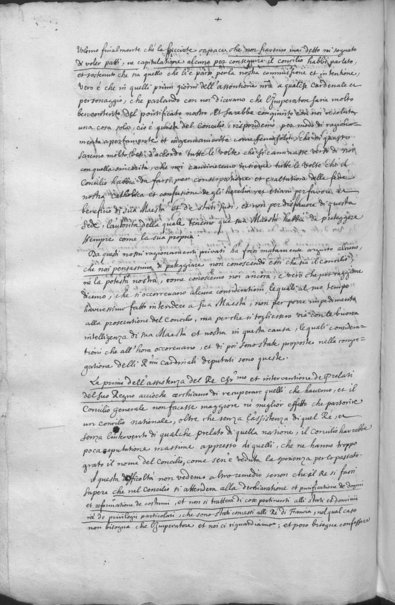 Volemo finalmente che la facciate capace, che non fussimo mai detto ne sognato
di voler patti, ne capitulatione alcuna per conseguire il concilio habbia parlato,
et sostenuto che in quello che li è parso per la nostra commissione et intentione,
Vero è che in quelli primi giorni dell'assontione nra à qualche cardinale et
personaggio, che parlando con noi dicevano che l'Imperatore saria molto
ben contento del pontificato nostro, et sarebbe congiunto con noi
una cosa solo, cio è quella del Concilio; rispondemo per modo di ragionamento
sariano molto ben d'acordo tutte le volte che si caminasse verso di noi
con quella sincerità, che noi caminavamo verso tutte le volte che il
Concilio habbia da farsi per conservatione et exaltatione della fede
nostra catholica et confusione de gli heretici, et etiam per favore et
beneficio di Sua Maestà et de stati suoi, et non per disfavore di questa
sede, l'autorità della quale tenemo che sua Maestà habbia di proteggere
sempre come la sua propria.
Da questi nostri ragionamenti privati hà forse malamente inteso alcuno,
che noi pensassimo di patteggiare non conoscendo essi che sia il concilio,
ne la potestà nostra, come conoscemo noi ancora, è vero che per raggione
diremo, che ci occorrevano alcune considerationi le quali al suo tempo
haveressimo fatto intendere a sua Maestà, non per porre impedimento
alla prosecutione del Concilio, ma perche si togliessero via con la buona
intelligenza di sua Maestà et nostra in questa causa, le quali considera-
tioni che all'hora occorrevano, et di poi sono state proposte nella congre-
gatione delli R.mi cardinali deputati sono queste.
La prima dell'assistenza del Re Chr.mo et interventione de prelati
del suo Regno accioche cerchiamo di recuperare quelli che haverà, et il
Concilio generale non facesse maggiore ne miglior effetto che partorir
un Concilio nationale, oltre che senza l'assistenza di quel Re, et
senza l'intervento di qualche prelato di quella natione, il Concilio harebbe
poca reputatione, massime appresso di quelli, che ne hanno troppo
grato il nome del Concilio, come se n'è veduta la sperienza per lo passato.
A questa difficoltà non vedemo altro remedio senon che il Re si facci
sapere che nel Concilio si attenderà alla declaratione et purificatione de dogmi
et reformatione de costumi, et non si trattarà di cose pertinenti alli stati et dominii
nè de privilegii particolari, che sono stati concessi alli Re di Francia, nel qual caso
non bisogna che l'Imperatore et noi ci riguardiamo; et però bisogna confessare